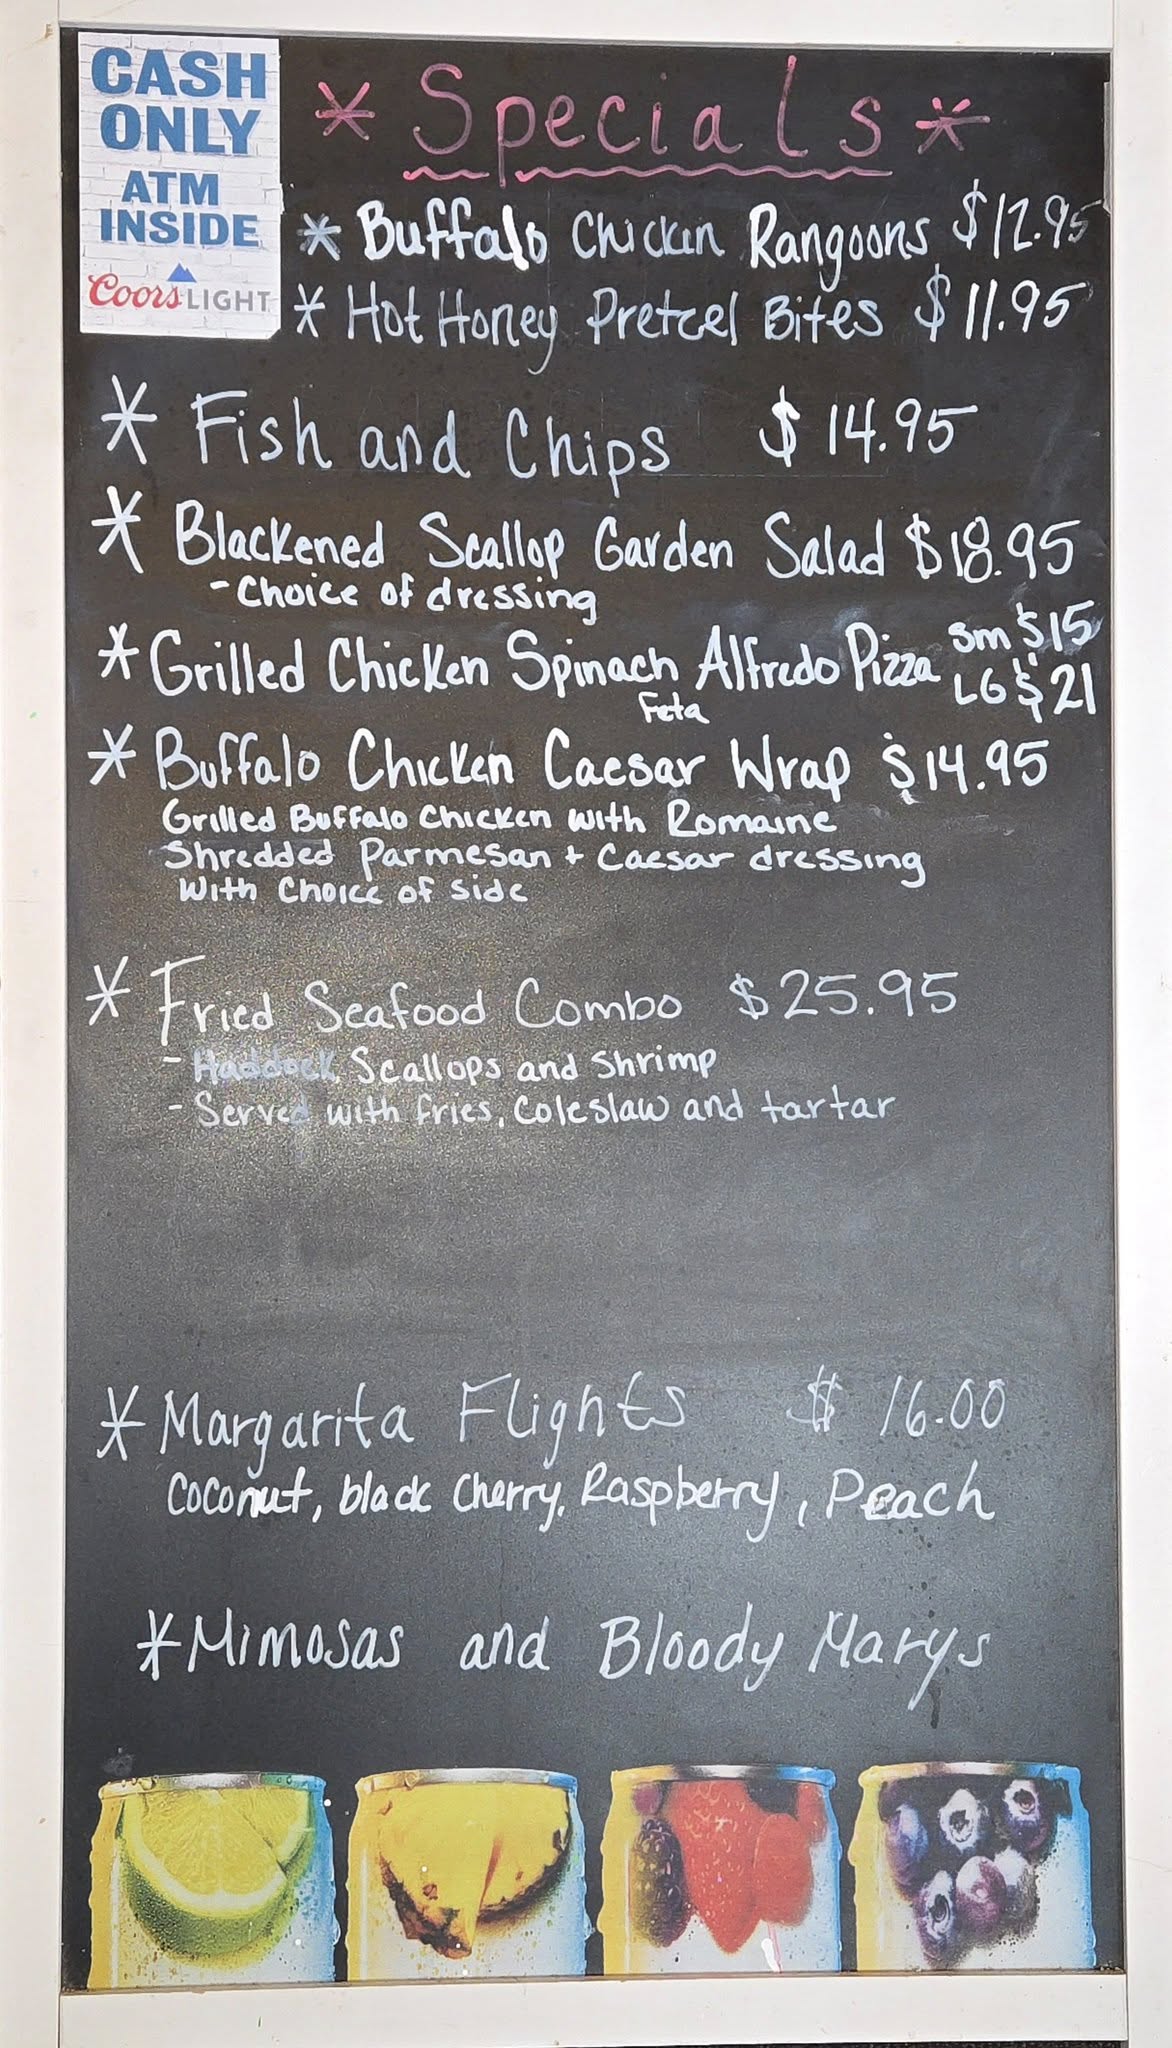 CASH
ONLY
ATM
INSIDE
Coors LIGHT
* Specials *
* Buffalo Chicken Rangoons $12.95
* Hot Honey Pretzel Bites $11.95
* Fish and Chips $14.95
* Blackened Scallop Garden Salad $18.95
- Choice of dressing
* Grilled Chicken Spinach Alfredo Pizza Sm $15
LG $21
Feta
* Buffalo Chicken Caesar Wrap $14.95
Grilled Buffalo Chicken with Romaine
Shredded Parmesan + Caesar dressing
With Choice of Side
* Fried Seafood Combo $25.95
- Haddock, Scallops and Shrimp
- Served with fries, Coleslaw and tartar
* Margarita Flights $16.00
Coconut, black Cherry, Raspberry, Peach
* Mimosas and Bloody Marys